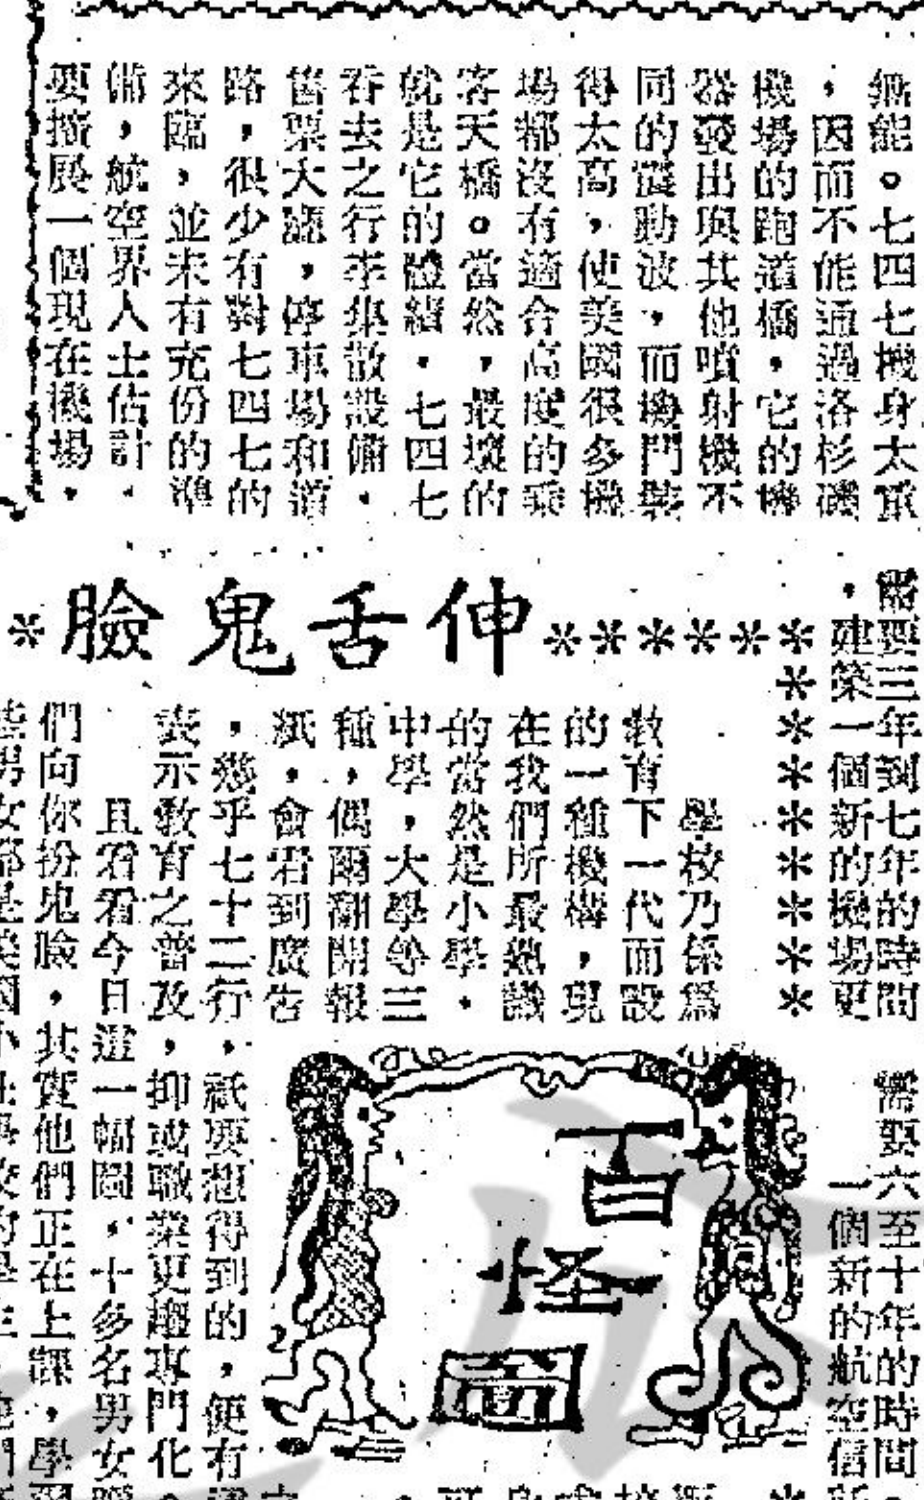 無能。七四七機身太重
，因而不能通過洛杉磯
機場的跑道橋，它的機
器發出與其他噴射機不
同的震動波，而機門裝
得太高，使美國很多機
場都沒有適合高度的乘
客天橋。當然，最壞的
就是它的體積，七四七
吞去之行李集散設備，
售票大廳，停車場和道
路，很少有對七四七的
來臨，並未有充份的準
備，航空界人士估計，
要擴展一個現在機場，
需要三年到七年的時間
，建築一個新的機場更
需要六至十年的時間。
一個新的航空信
伸舌鬼臉
學校乃係為
教育下一代而設
的一種機構，現
在我們所最熟識
的當然是小學，
中學，大學等三
種，偶爾翻開報
紙，會看到廣告
，幾乎七十二行，祇要想得到的，便有
表示教育之普及，抑或職業更趨專門化。
且看看今日這一幅圖，十多名男女
們向你扮鬼臉，其實他們正在上課，學
些男女都是美國小
百怪圖